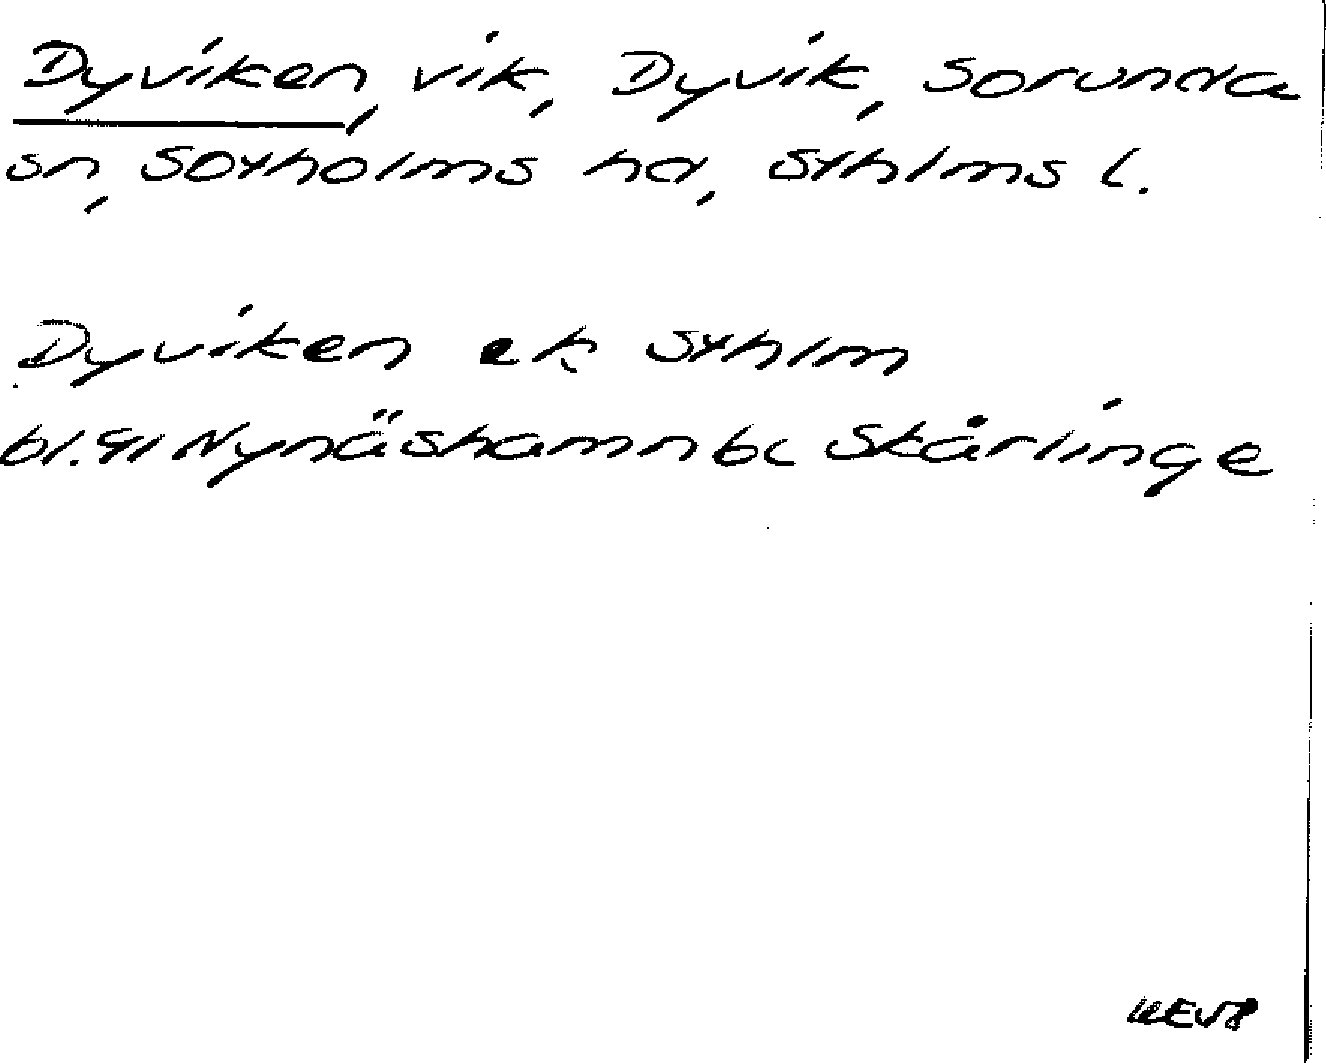 Dyviken, vik, Dyvik, Sorunda
sn, Sotholms hd, Sthlms l.
Dyviken ek Sthlm
bl. 91 Nynäshamn bl Skårlinge